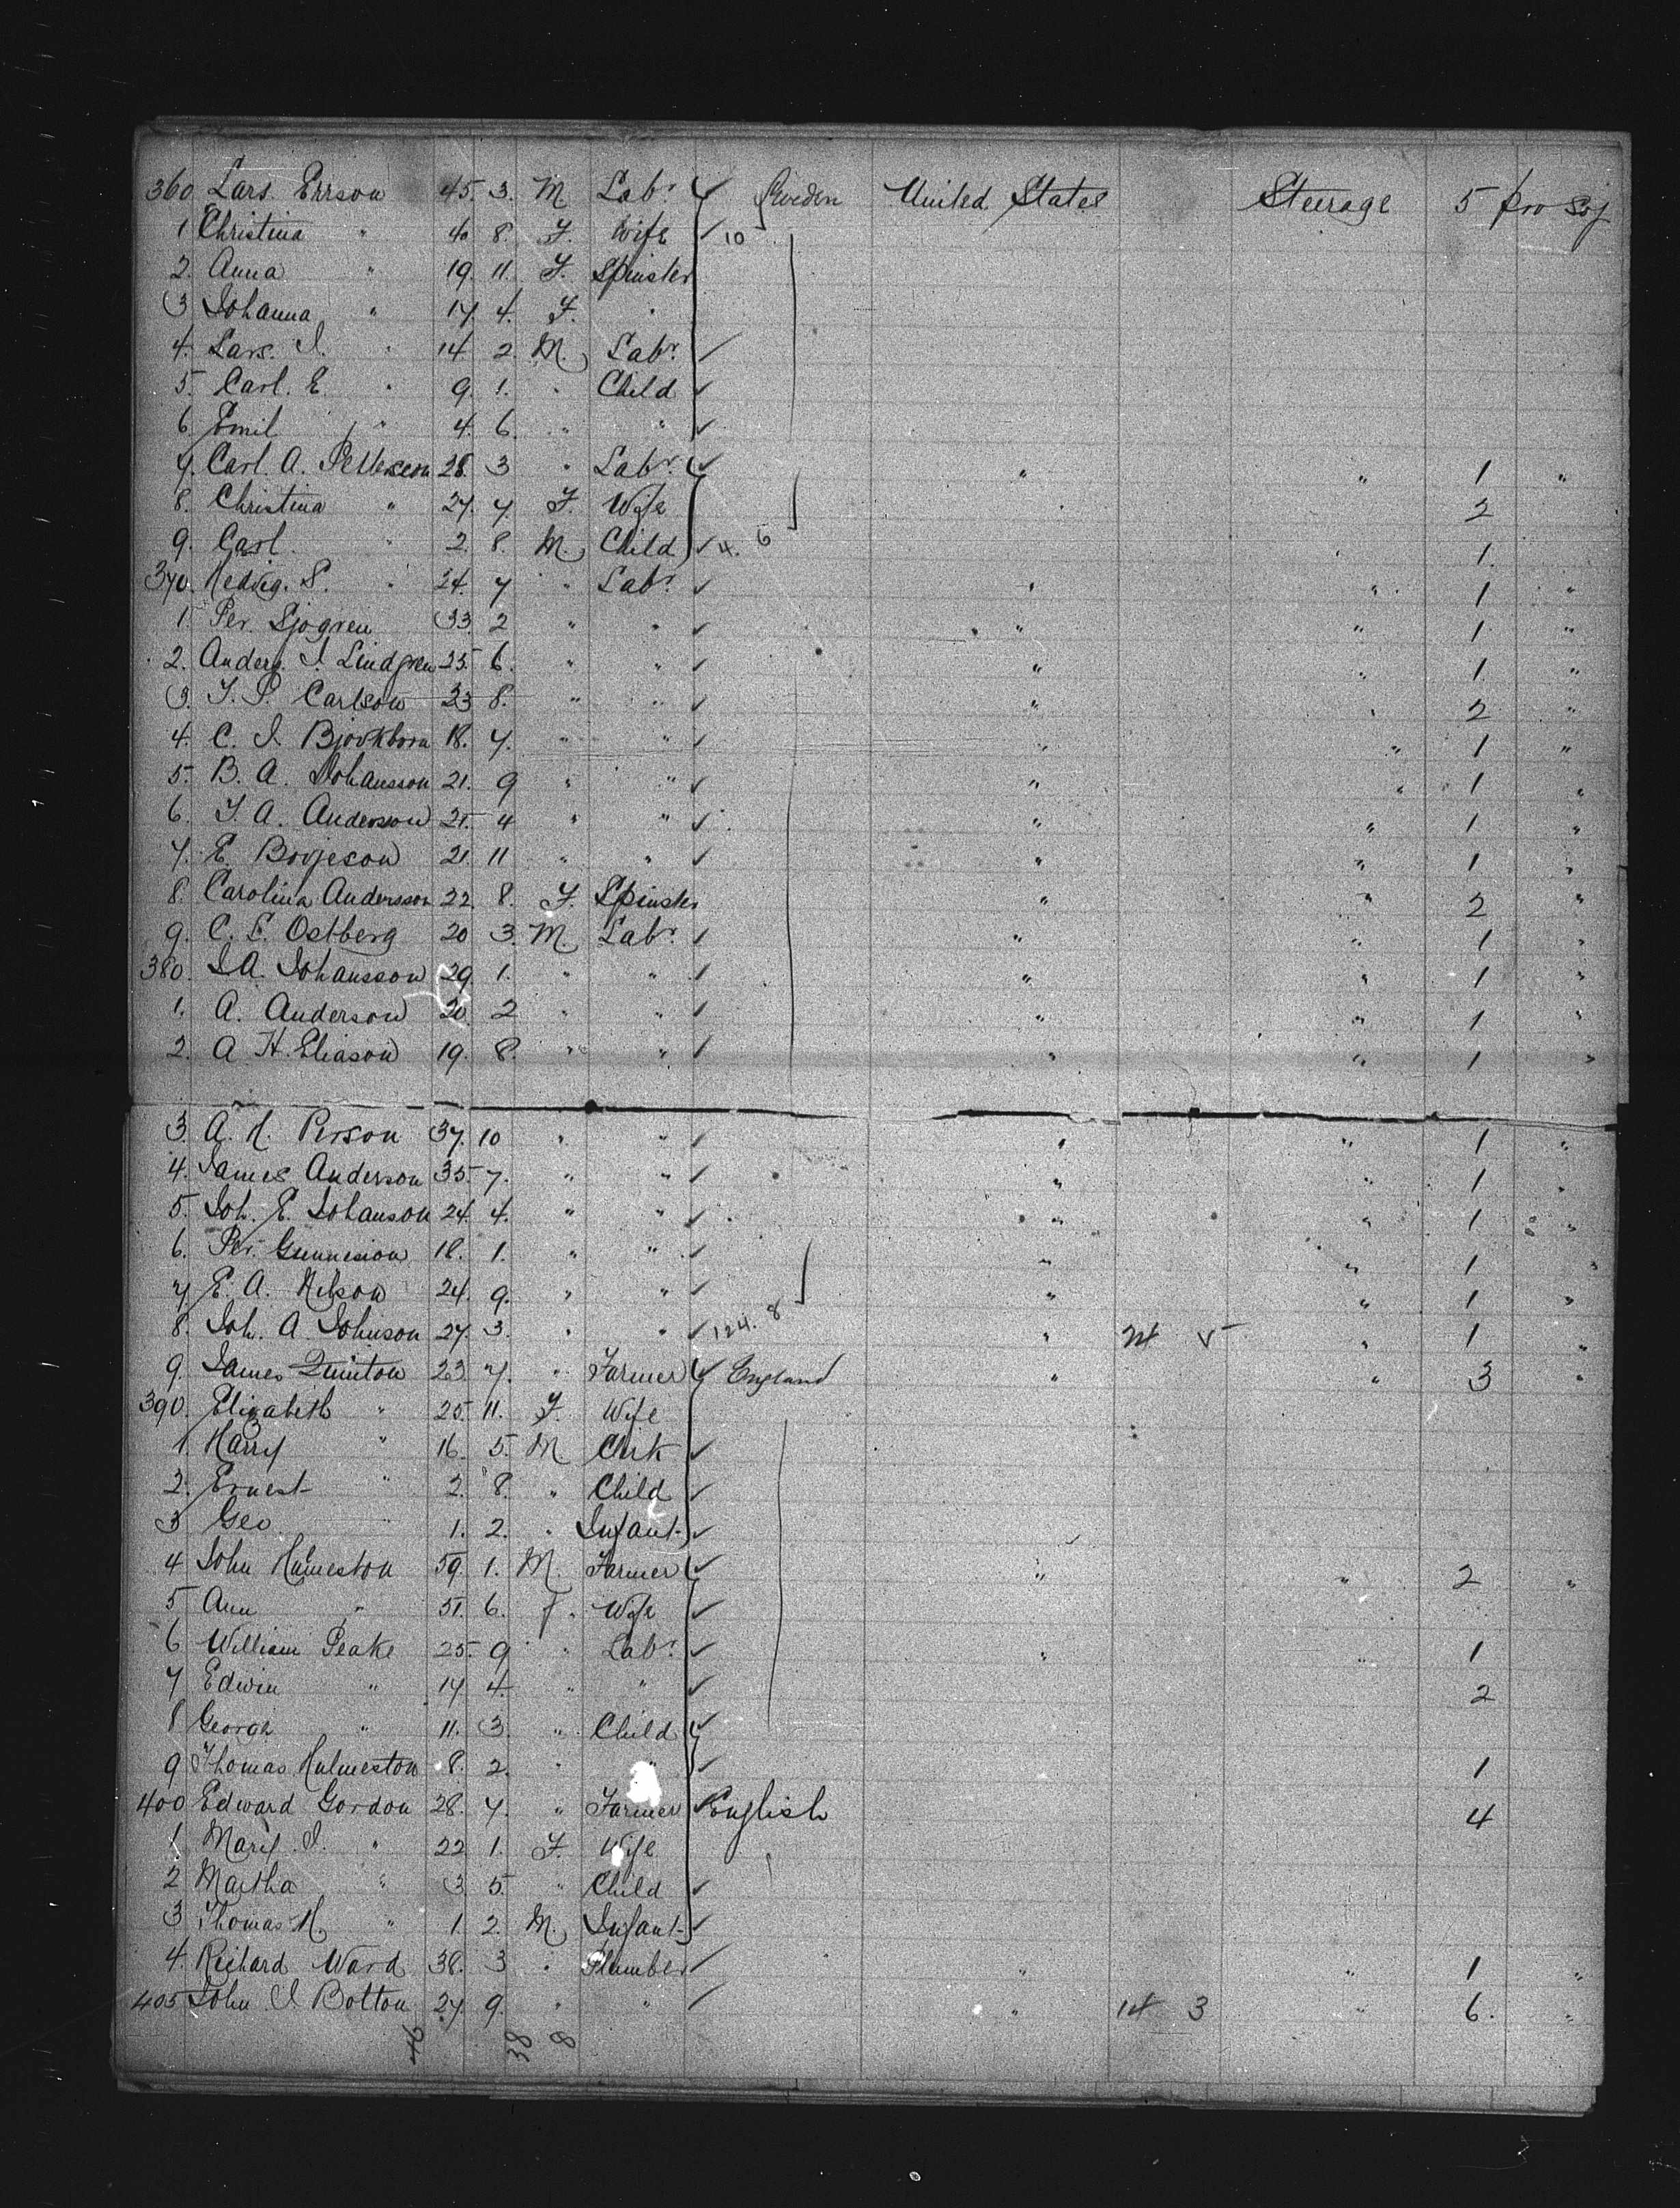 360 Lars. Errson 45. 3. M Labr. ✓ Sweden United States Steerage 5 pro soj
1 Christina " 40 8. F. Wife ✓ 10
2. Anna " 19. 11. F. Spinster
3 Johanna " 17. 4. F. "
4. Lars. J. " 14 2. M. Labr. ✓
5. Carl. E. " 9. 1. " Child ✓
6. Emil " 4. 6. " " ✓
7. Carl. A. Petterson 28. 3 " Labr. ✓ " " 1 "
8. Christina " 27. 7. F. Wife 2
9. Carl " 2. 8. M. Child ✓ 4. 6 1.
370. Hedvig. S. " 24. 7 " Labr. ✓ " " 1 "
1. Per. Sjogren 33. 2 " " ✓ " " 1 "
2. Anders. J. Lindgren 25. 6. " " ✓ " " 1. "
3. J. P. Carlson 23 8. " " ✓ " " 2 "
4. C. J. Bjorkborn 18. 7. " " ✓ " " 1 "
5. B. A. Johansson 21. 9 " " ✓ " " 1 "
6. J. A. Anderson 21. 4 " " ✓ " " 1 "
7. E. Borjeson 21. 11 " " ✓ " " 1 "
8. Carolina Andersson 22. 8. F. Spinster " " 2 "
9. C. E. Ostberg 20 3. M. Labr. ✓ " " 1 "
380. J A. Johansson 29. 1. " " ✓ " " 1 "
1. A. Anderson 20. 2 " " ✓ " " 1 "
2. A H. Eliason 19. 8. " " ✓ " " 1 "
3. A. H. Person 37. 10 " " ✓ " " 1 "
4. James Anderson 35. 7. " " ✓ " " 1 "
5. Joh. E. Johanson 24. 4. " " ✓ " " 1 "
6. Per. 18. 1. " " ✓ " " 1 "
7 E. A. Nilson 24. 9. " " ✓ " " 1 "
8. Joh. A. Johnson 27. 3. " " ✓ 124. 8 " " 1 "
9. James Quinton 23. 7. " Farmer ✓ England " " 3 "
390. Elizabeth " 25. 11. F. Wife
1 Harry " 16. 5. M Clerk ✓
2. Ernest " 2. 8. " Child ✓
3 Geo " 1. 2. " Infant ✓
4 John Hulmeston 59. 1. M. Farmer ✓ " " 2 "
5 Ann " 51. 6. f. Wife ✓
6 William Peake 25. 9 " Labr. ✓ " " 1
7 Edwin " 17 4. " " ✓ 2
8 George " 11. 3. " Child ✓
9 Thomas Hulmeston 8. 2. " " ✓ 1
400 Edward Gordon 28. 7. " Farmer ✓ English 4
1. Mary. J. " 22 1. F. Wife
2 Martha " 3. 5. " Child ✓
3 Thomas H. " 1. 2. M. Infant ✓
4. Richard Ward 38. 3 " Plumber ✓ " " 1 "
405 John J Bolton 27. 9. " " ✓ " 14 3 " 6. "
46 38 8